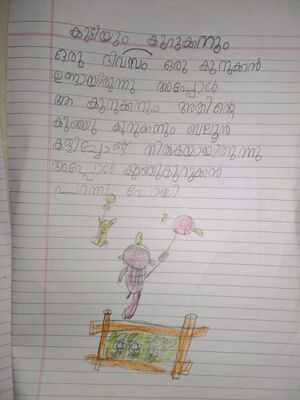 കുട്ടിയും കുറുക്കനും
ഒരു ദിവസം ഒരു കുറുക്കൻ
ഉണ്ടായിരുന്നു അപ്പോൾ
ആ കുറുക്കനും അതിന്റെ
കുഞ്ഞു കുറുക്കനും ബലൂൺ
കളിച്ചോണ്ട് നിൽകയായിരുന്നു
അപ്പോൾ കുഞ്ഞുകുറുക്കൻ
പറന്നു പോയി